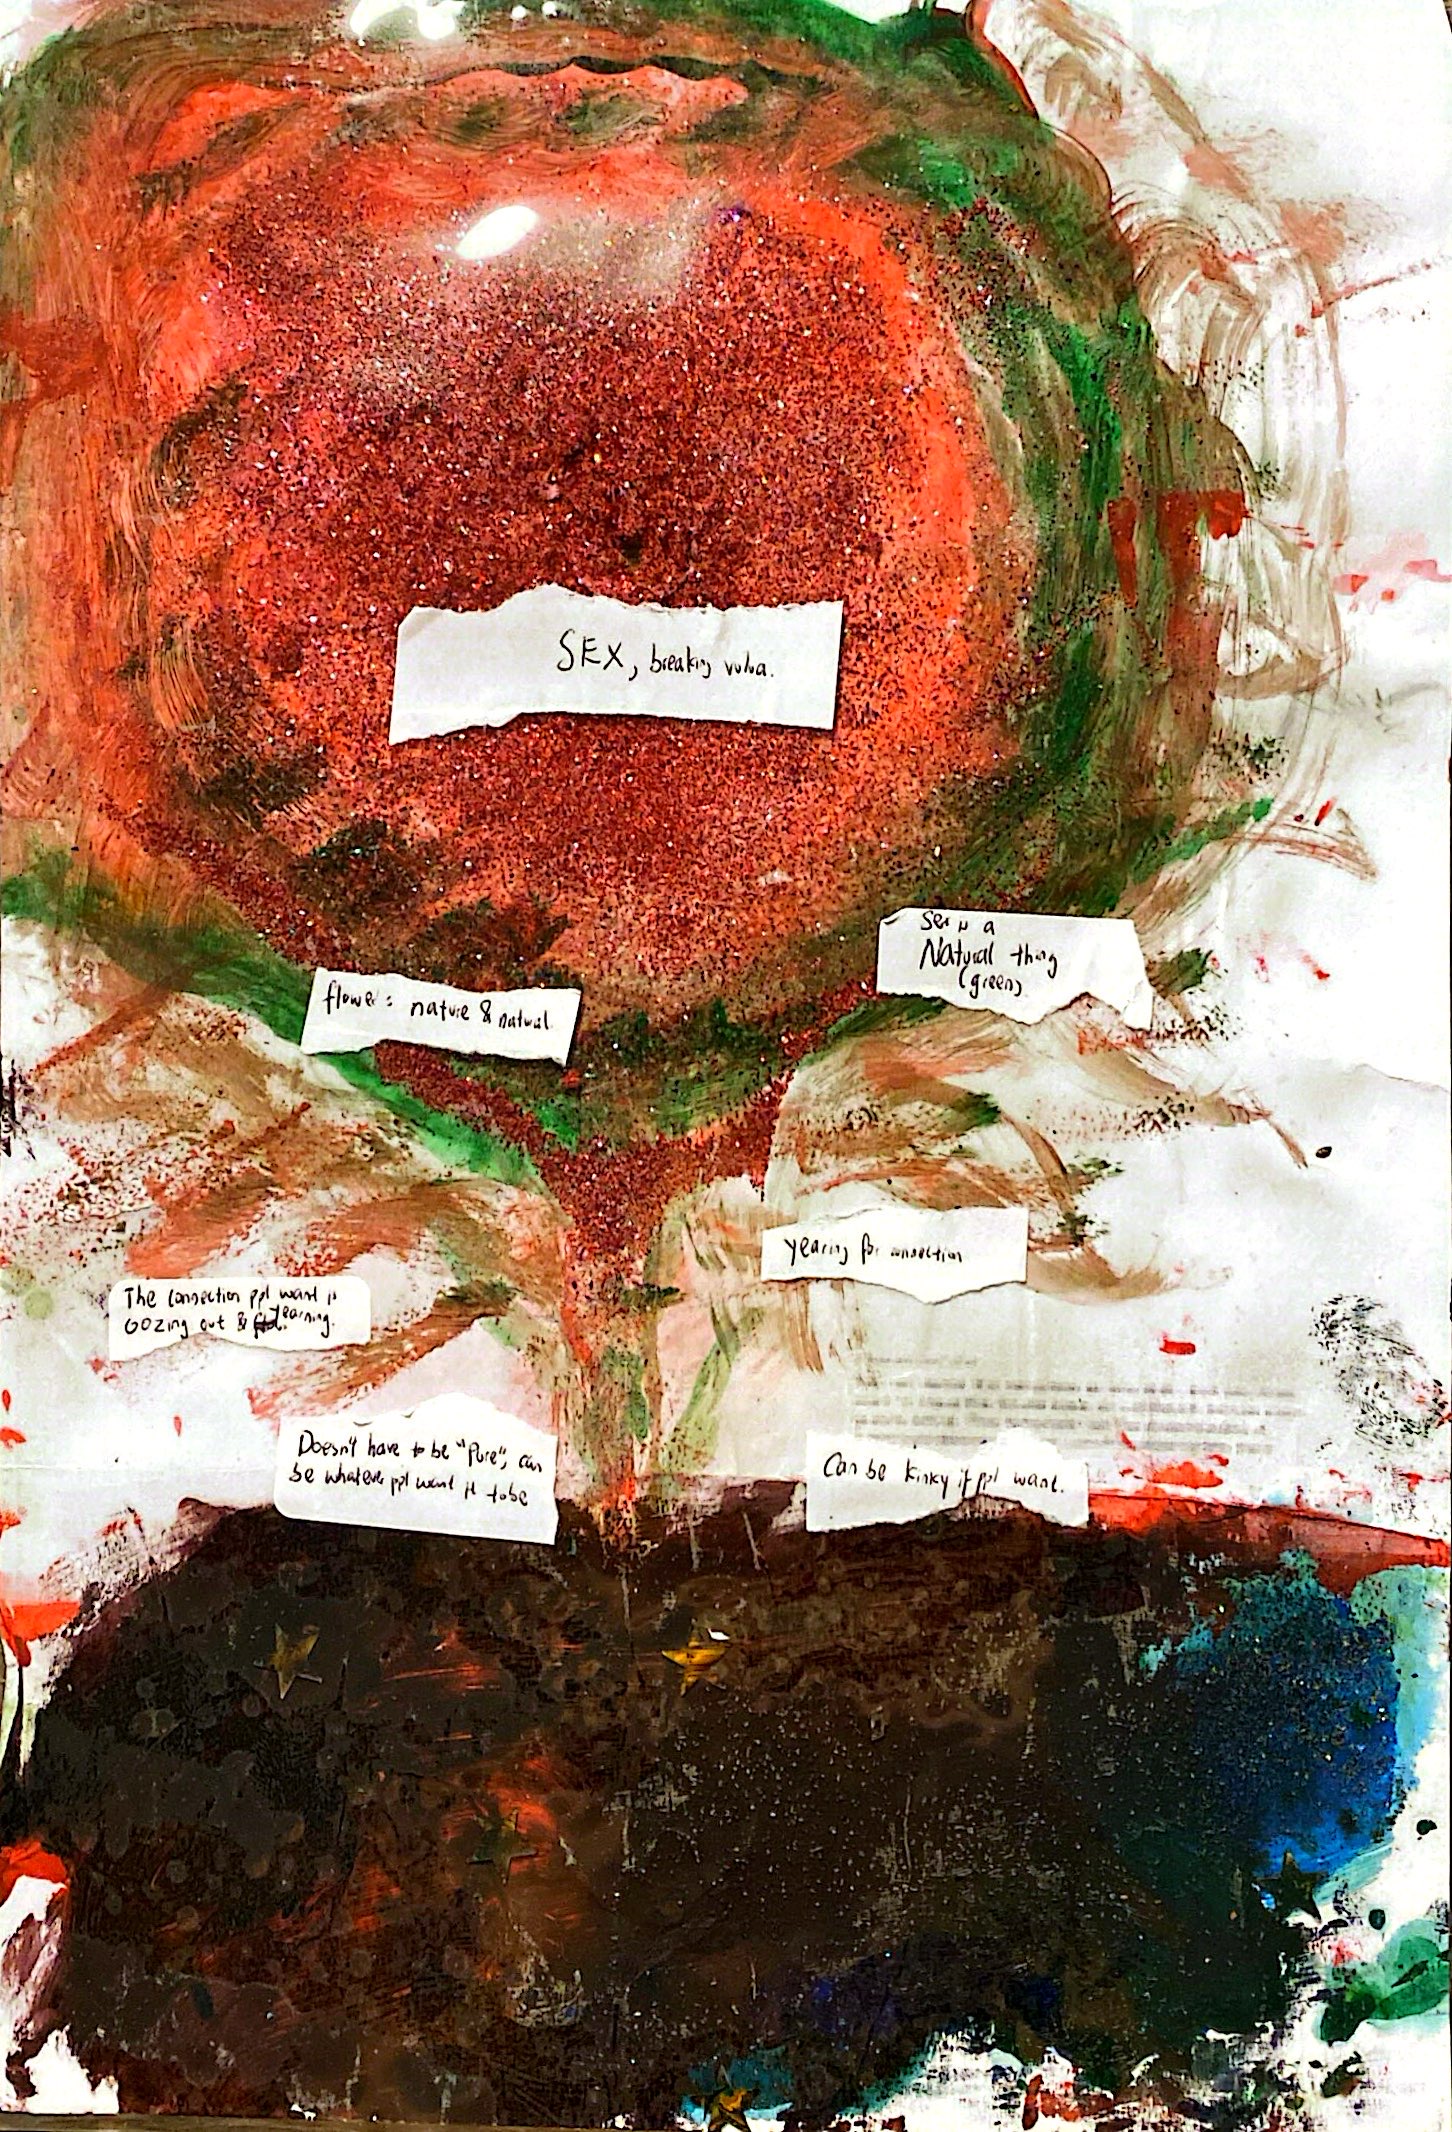 SEX, breaking vulva.
Sex is a
Natural thing
(green)
flower: nature & natural.
yearing for connection
The connection ppl want is
oozing out & yearning.
Doesn't have to be "Pure", can
be whatever ppl want it to be
Can be kinky if ppl want.